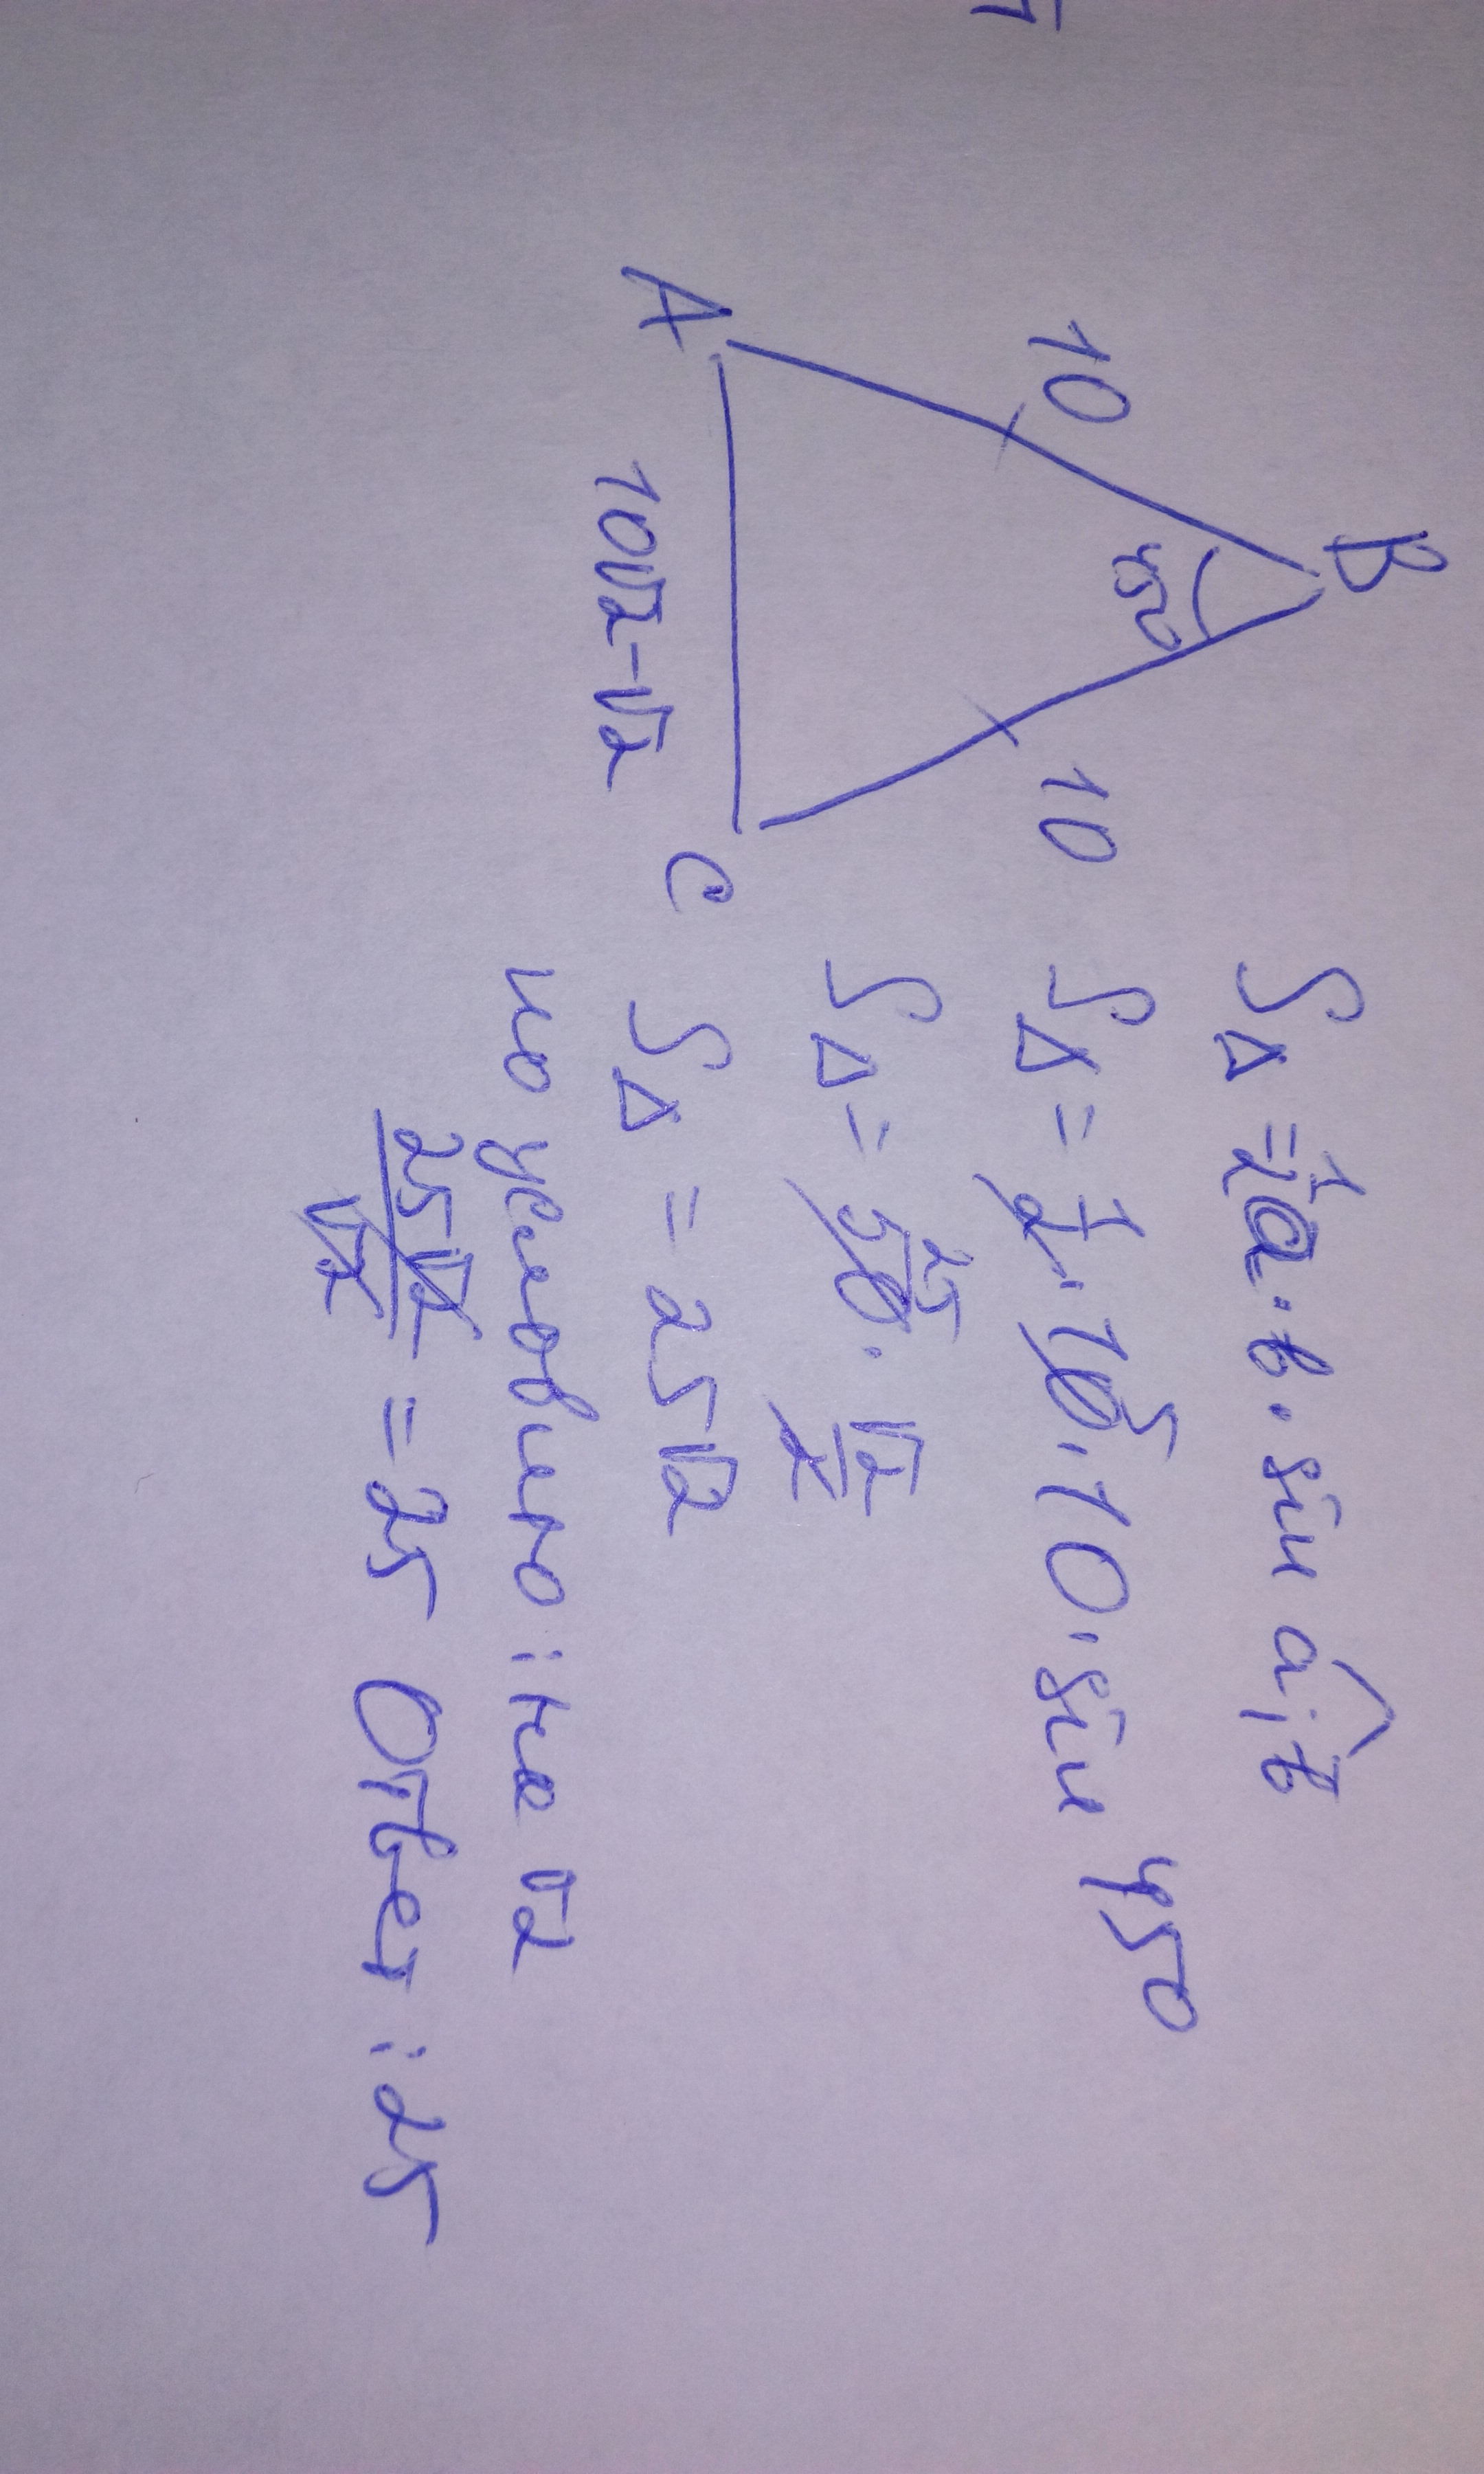 B
10
10
45°
A
C
10√2-√2
S△ = 1/2 a · b · sin a;b
S△ = 1/2 · 10 5 · 10 · sin 45°
S△ = 50 25 · √2/2
S△ = 25√2
по условию: на √2
25√2/√2 = 25 Ответ: 25